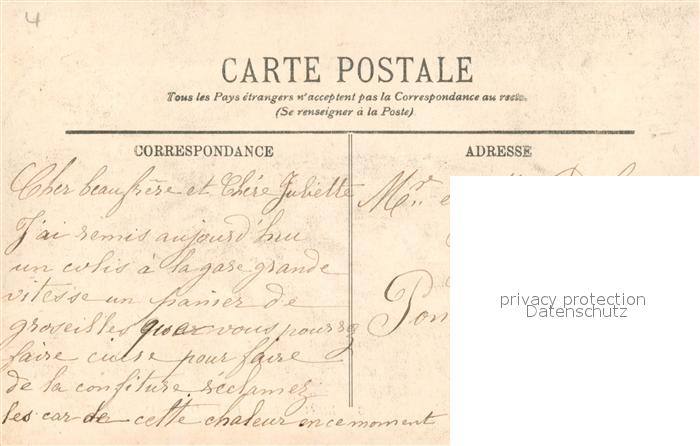 4
CARTE POSTALE
Tous les Pays étrangers n'acceptent pas la Correspondance au recto.
(Se renseigner à la Poste)
CORRESPONDANCE
Cher beaufrère et Chère Juliette
J'ai remis aujourd'huu
un colis à la gare grande
vitesse un panier de
groseilles que vous pourrez
faire cuire pour faire
de la confiture réclamez
les car de cette chaleur en ce moment
ADRESSE
privacy protection
Datenschutz